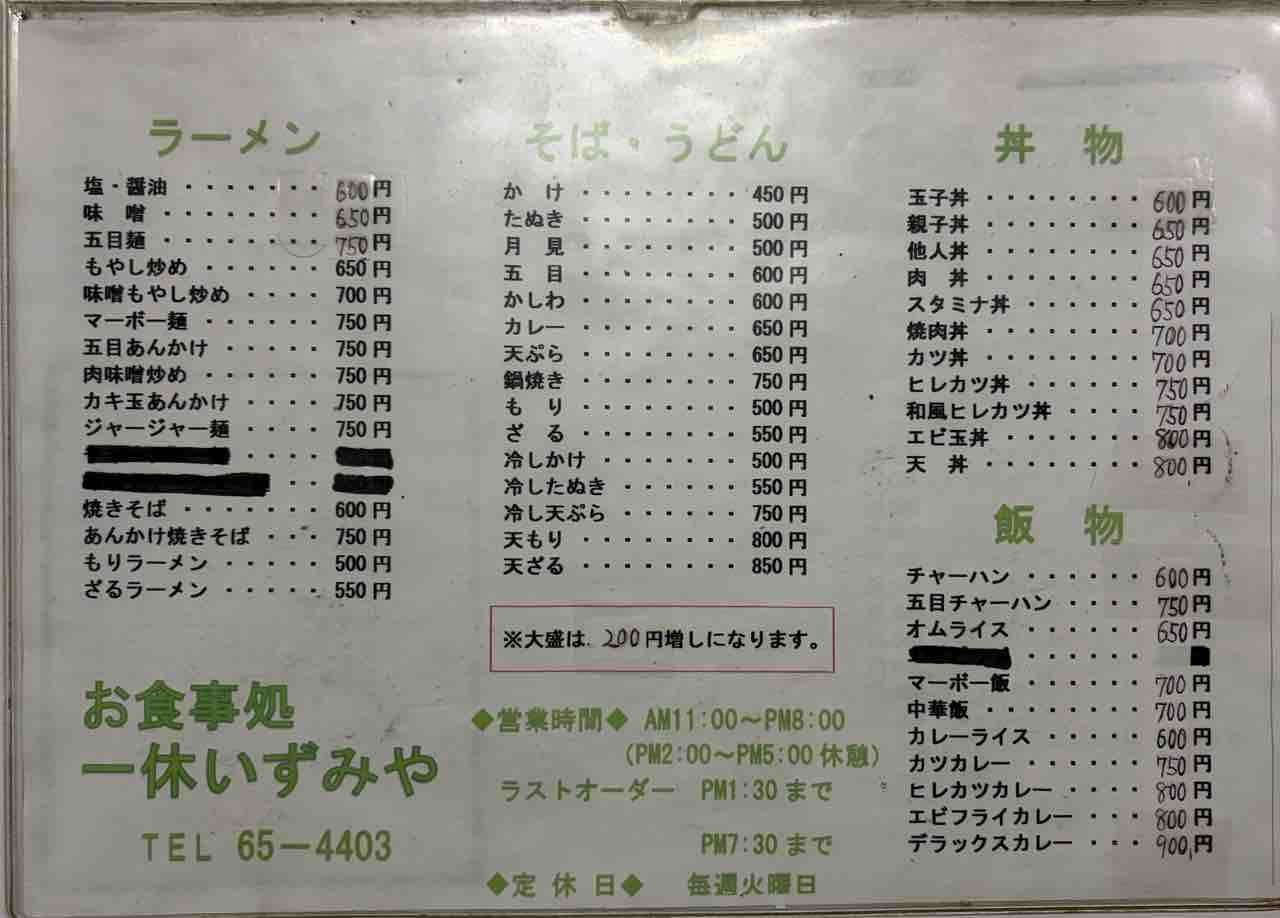 ラーメン
塩・醤油 ・・・・・・・ 600円
味　噌 ・・・・・・・・ 650円
五目麺 ・・・・・・・・ 750円
もやし炒め ・・・・・・ 650円
味噌もやし炒め ・・・・ 700円
マーボー麺 ・・・・・・ 750円
五目あんかけ ・・・・・ 750円
肉味噌炒め ・・・・・・ 750円
カキ玉あんかけ ・・・・ 750円
ジャージャー麺 ・・・・ 750円
焼きそば ・・・・・・・ 600円
あんかけ焼きそば ・・・ 750円
もりラーメン ・・・・・ 500円
ざるラーメン ・・・・・ 550円
お食事処
一休いずみや
TEL 65－4403
そば・うどん
か　け ・・・・・・・・ 450円
たぬき ・・・・・・・・ 500円
月　見 ・・・・・・・・ 500円
五　目 ・・・・・・・・ 600円
かしわ ・・・・・・・・ 600円
カレー ・・・・・・・・ 650円
天ぷら ・・・・・・・・ 650円
鍋焼き ・・・・・・・・ 750円
も　り ・・・・・・・・ 500円
ざ　る ・・・・・・・・ 550円
冷しかけ ・・・・・・・ 500円
冷したぬき ・・・・・・ 550円
冷し天ぷら ・・・・・・ 750円
天もり ・・・・・・・・ 800円
天ざる ・・・・・・・・ 850円
※大盛は、200円増しになります。
◆営業時間◆ AM11:00～PM8:00
(PM2:00～PM5:00休憩)
ラストオーダー PM1:30まで
PM7:30まで
◆定休日◆ 毎週火曜日
丼　物
玉子丼 ・・・・・・・・ 600円
親子丼 ・・・・・・・・ 650円
他人丼 ・・・・・・・・ 650円
肉　丼 ・・・・・・・・ 650円
スタミナ丼 ・・・・・・ 650円
焼肉丼 ・・・・・・・・ 700円
カツ丼 ・・・・・・・・ 700円
ヒレカツ丼 ・・・・・・ 750円
和風ヒレカツ丼 ・・・・ 750円
エビ玉丼 ・・・・・・・ 800円
天　丼 ・・・・・・・・ 800円
飯　物
チャーハン ・・・・・・ 600円
五目チャーハン ・・・・ 750円
オムライス ・・・・・・ 650円
マーボー飯 ・・・・・・ 700円
中華飯 ・・・・・・・・ 700円
カレーライス ・・・・・ 600円
カツカレー ・・・・・・ 750円
ヒレカツカレー ・・・・ 800円
エビフライカレー ・・・ 800円
デラックスカレー ・・・ 900円